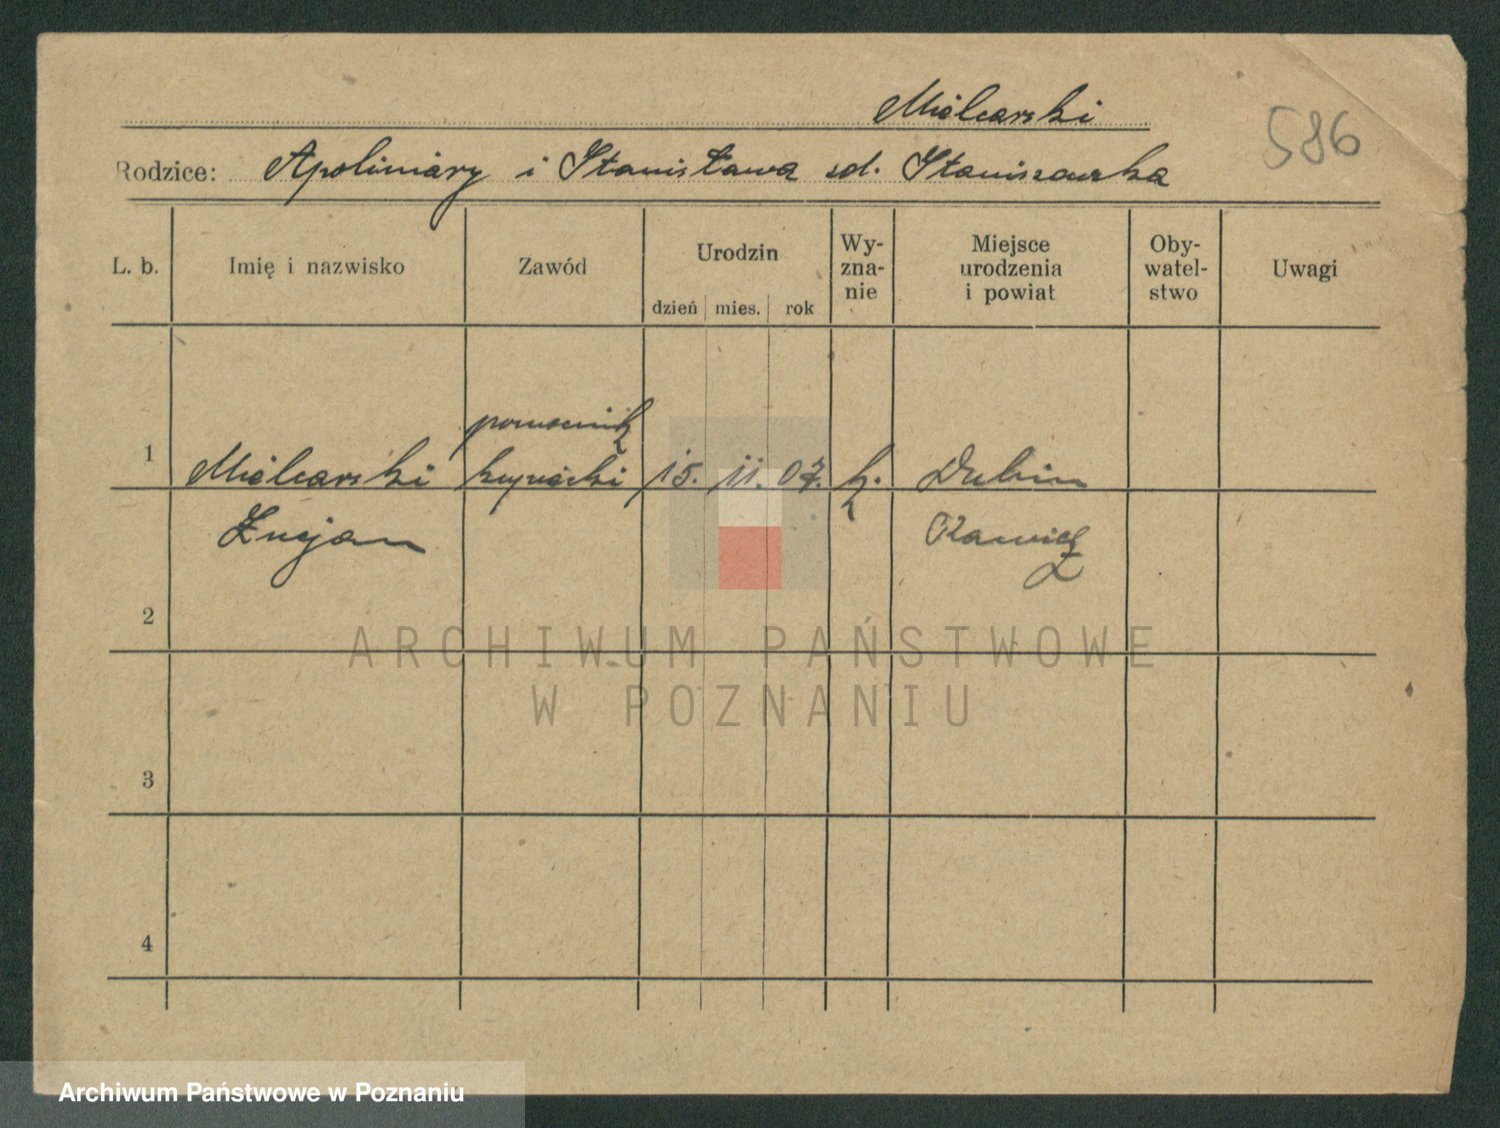 Mielcarski
586
Rodzice: Apolinary i Stanisława zd. Staniszewska
L. b. Imię i nazwisko Zawód Urodzin dzień mies. rok Wy-zna-nie Miejsce urodzenia i powiat Oby-watel-stwo Uwagi
pomocnik
1 Mielcarski kupiecki 15. 11. 07. k. Dubin
Łucjan Rawicz
2
ARCHIWUM PAŃSTWOWE
W POZNANIU
3
4
Archiwum Państwowe w Poznaniu